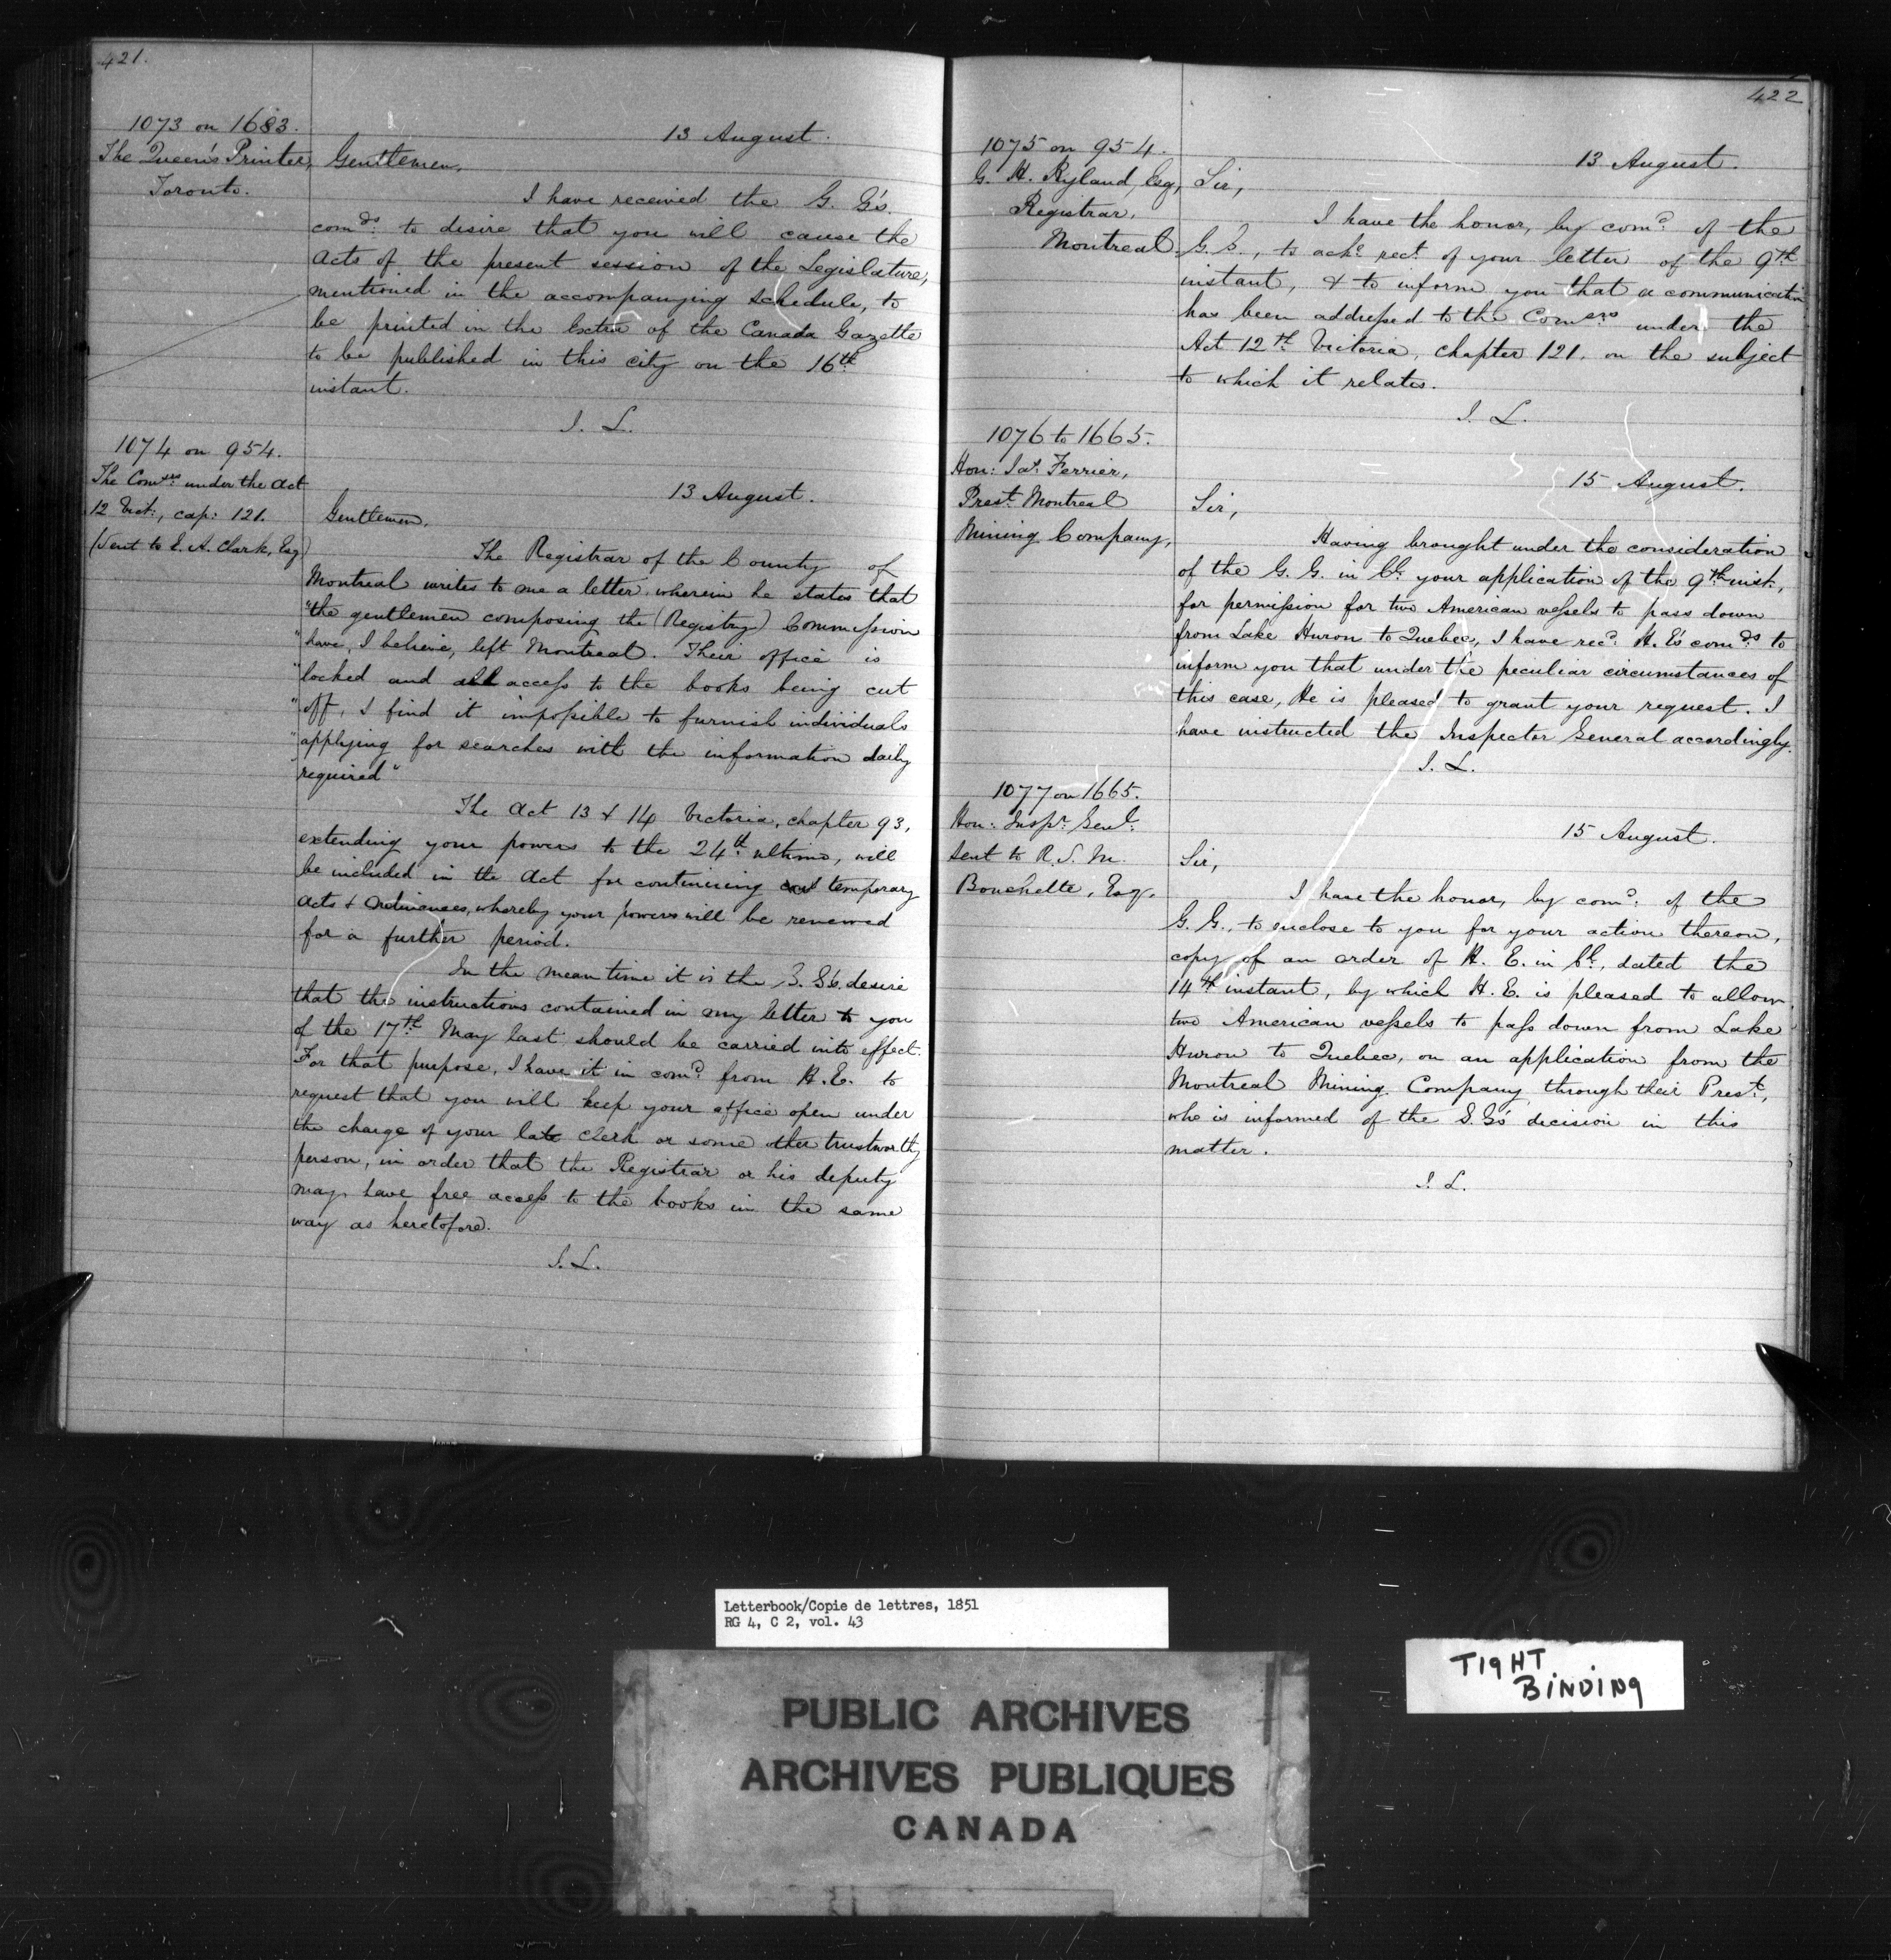 421.
1073 on 1683.
The Queen's Printer,
Toronto.
13 August.
Gentlemen,
I have received the G. G's.
comds. to desire that you will cause the
Acts of the present session of the Legislature,
mentioned in the accompanying Schedule, to
be printed in the Extra of the Canada Gazette
to be published in this city on the 16th
instant.
J. L.
1074 on 954.
The Comsrs under the Act
12 Vict:, cap: 121.
(Sent to S. A. Clark, Esq)
13 August.
Gentlemen,
The Registrar of the County of
Montreal writes to me a letter wherein he states that
"the gentlemen composing the (Registry) Commission
"have, I believe, left Montreal. Their office is
"locked and all access to the books being cut
"off, I find it impossible to furnish individuals
"applying for searches with the information daily
"required"
The Act 13 & 14 Victoria, chapter 93,
extending your powers to the 24th ultimo, will
be included in the Act for continuing temporary
Acts & Ordinances, whereby your powers will be renewed
for a further period.
In the mean time it is the G. G's. desire
that the instructions contained in my letter to you
of the 17th May last should be carried into effect.
For that purpose, I have it in comd. from H. E. to
request that you will keep your office open under
the charge of your late Clerk or some other trustworthy
person, in order that the Registrar or his deputy
may have free access to the books in the same
way as heretofore.
J. L.
422
1075 on 954.
G. H. Ryland, Esq,
Registrar,
Montreal.
13 August.
Sir,
I have the honor, by comd. of the
G. G., to acke. rect. of your letter of the 9th
instant, & to inform you that a communication
has been addressed to the Comsrs under the
Act 12th Victoria, chapter 121. on the subject
to which it relates.
J. L.
1076 to 1665.
Hon: Jas. Ferrier,
Prest. Montreal
Mining Company,
15 August.
Sir,
Having brought under the consideration
of the G. G. in Cl. your application of the 9th inst.,
for permission for two American vessels to pass down
from Lake Huron to Quebec, I have recd. H. E's comds. to
inform you that under the peculiar circumstances of
this case, He is pleased to grant your request. I
have instructed the Inspector General accordingly.
J. L.
1077 on 1665.
Hon: Inspr. Genl.
Sent to R. S. M.
Bouchette, Esq.
15 August.
Sir,
I have the honor, by comd. of the
G. G., to enclose to you for your action thereon,
copy of an order of H. E. in Cl., dated the
14th instant, by which H. E. is pleased to allow
two American vessels to pass down from Lake
Huron to Quebec, on an application from the
Montreal Mining Company through their Prest.,
who is informed of the G. G's decision in this
matter.
J. L.
Letterbook/Copie de lettres, 1851
RG 4, C 2, vol. 43
TIGHT
BINDING
PUBLIC ARCHIVES
ARCHIVES PUBLIQUES
CANADA